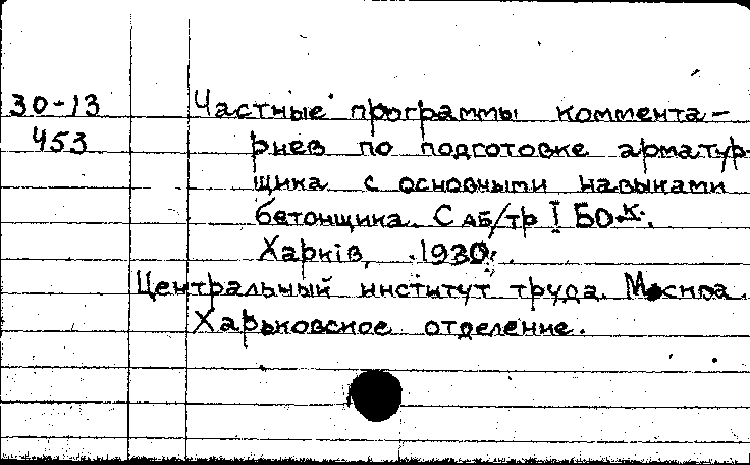 30-13 Частные программы коммента-
453 риев по подготовке арматур-
щика с основными навыками
бетонщика. С аб/тр I БО.К.
Харкiв, 1930.
Центральный институт труда. Москва.
Харьковское отделение.